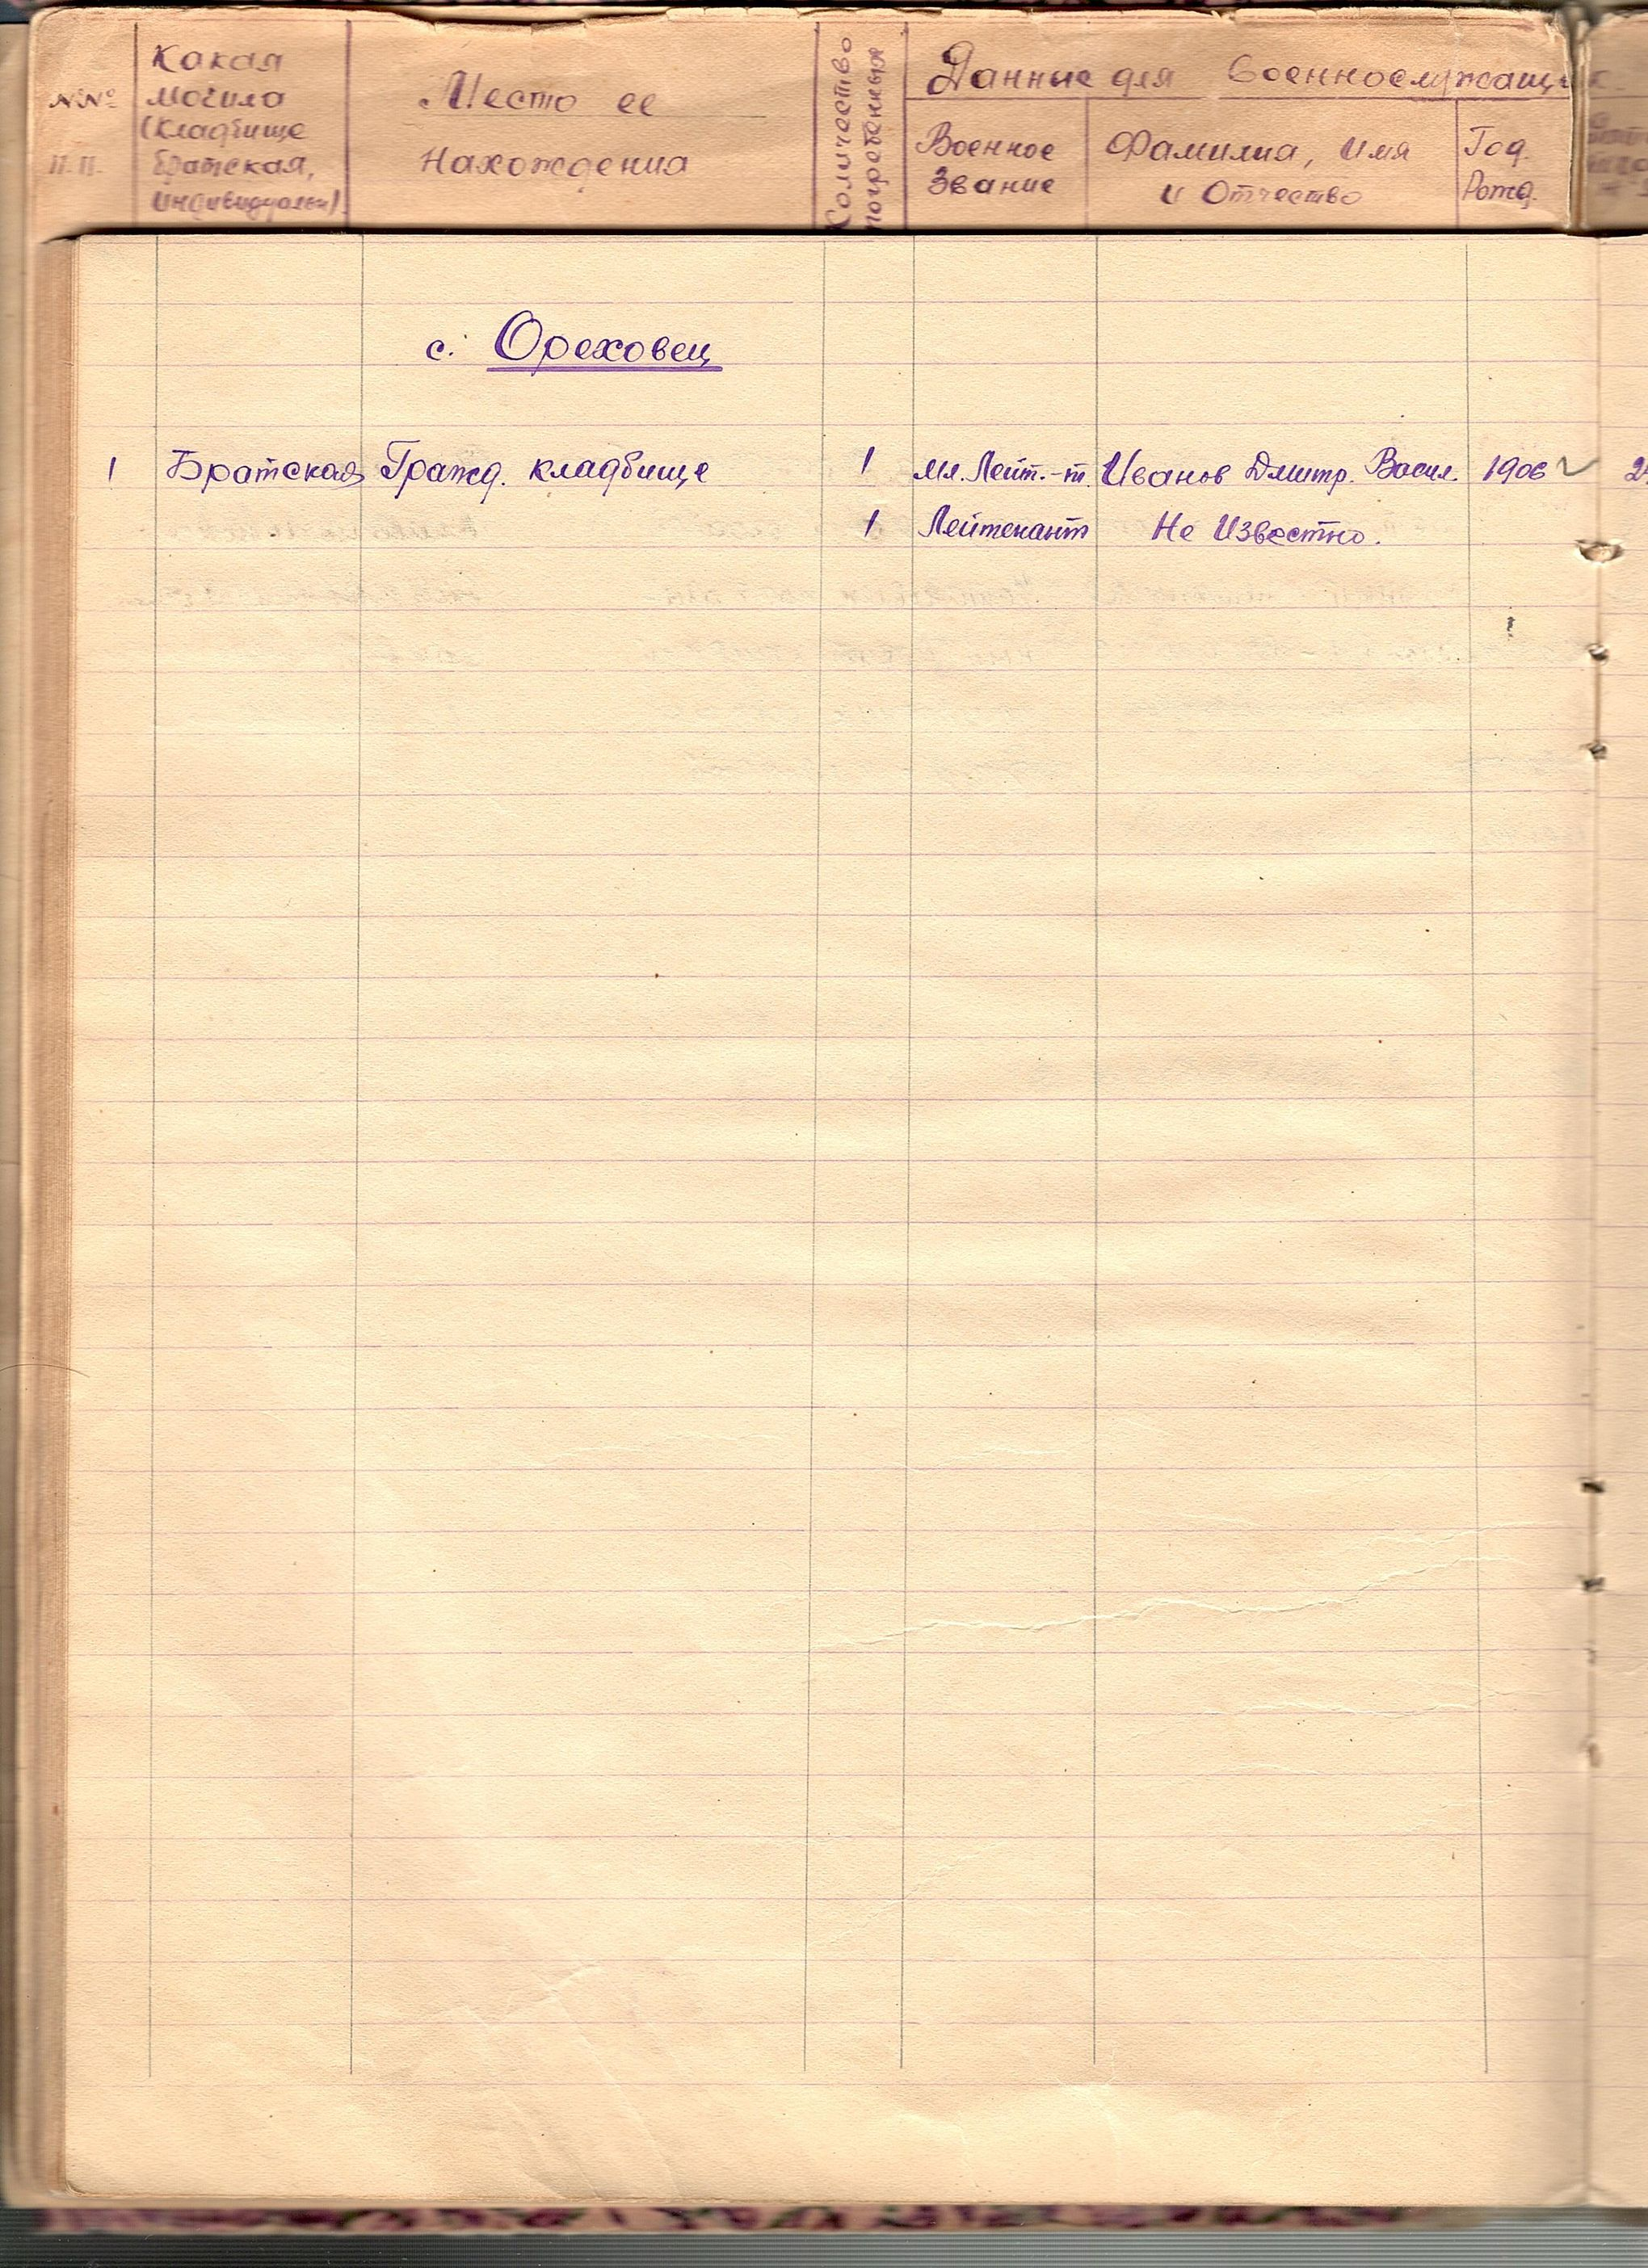 №№ п.п.
Какая
могила
(кладбище
братская,
индивидуальн).
Место ее
Нахождения
Количество
погребенных
Данные для военнослужащи
Военное
Звание
Фамилия, имя
и Отчество
Год.
Рожд.
с. Ореховец
1 Братская Гражд. кладбище 1 мл. Лейт.-т. Иванов Дмитр. Васил. 1906
1 Лейтенант Не Известно.